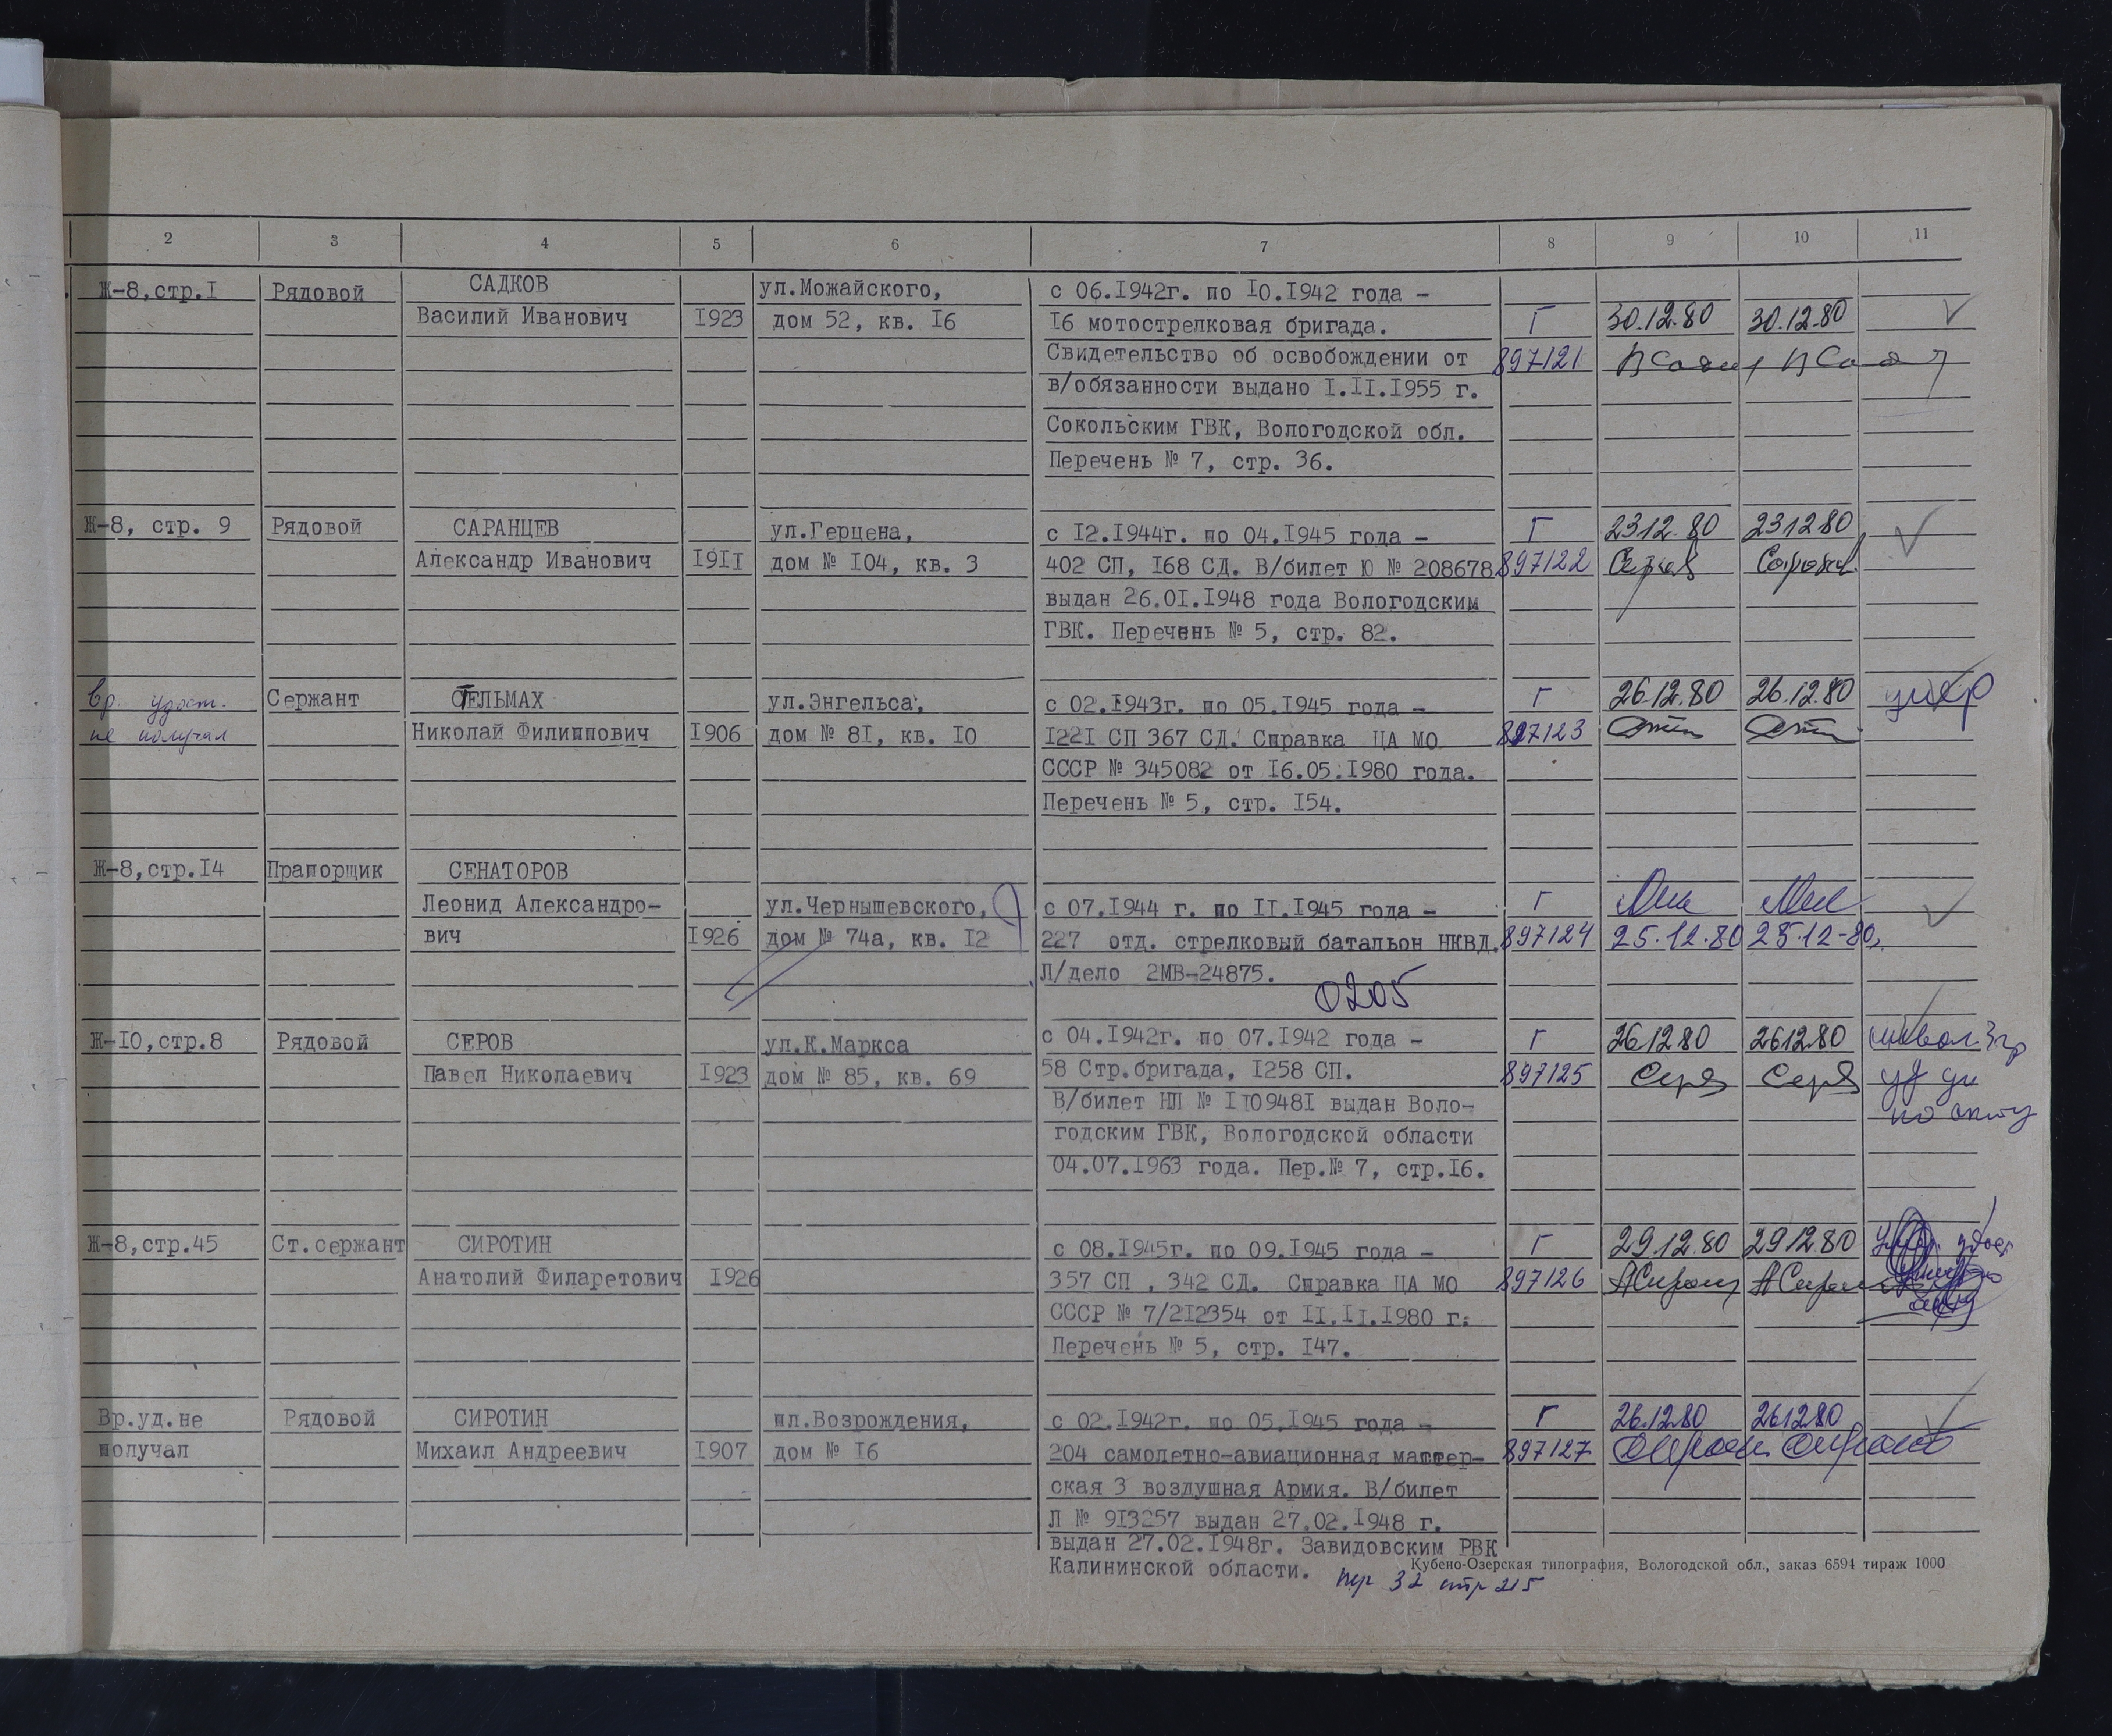 2 3 4 5 6 7 8 9 10 11
Ж-8,стр.I Рядовой САДКОВ ул.Можайского, с 06.I942г. по I0.I942 года –
Василий Иванович I923 дом 52, кв. I6 I6 мотострелковая бригада. Г 30.12.80 30.12.80
Свидетельство об освобождении от 897121
в/обязанности выдано I.II.I955 г.
Сокольским ГВК, Вологодской обл.
Перечень № 7, стр. 36.
Ж-8, стр. 9 Рядовой САРАНЦЕВ ул.Герцена, с I2.I944г. по 04.I945 года – Г 23.12.80 23.12.80
Александр Иванович I9II дом № I04, кв. 3 402 СП, I68 СД. В/билет Ю № 208678 897122
выдан 26.0I.I948 года Вологодским
ГВК. Перечень № 5, стр. 82.
Вр. удост. Сержант СТЕЛЬМАХ ул.Энгельса, с 02.I943г. по 05.I945 года – Г 26.12.80 26.12.80
не получал Николай Филиппович I906 дом № 8I, кв. I0 I22I СП 367 СД. Справка ЦА МО 897123
СССР № 345082 от I6.05.I980 года.
Перечень № 5, стр. I54.
Ж-8,стр.I4 Прапорщик СЕНАТОРОВ
Леонид Александро- ул.Чернышевского, с 07.I944 г. по II.I945 года – Г
вич I926 дом № 74а, кв. I2 227 отд. стрелковый батальон НКВД. 897124 25.12.80 25.12-80
Л/дело 2МВ-24875.
0205
Ж-I0,стр.8 Рядовой СЕРОВ ул.К.Маркса с 04.I942г. по 07.I942 года – Г 26.12.80 26.12.80
Павел Николаевич I923 дом № 85, кв. 69 58 Стр.бригада, I258 СП. 897125 Серов Серов
В/билет НП № II0948I выдан Воло- по акту
годским ГВК, Вологодской области
04.07.I963 года. Пер.№ 7, стр.I6.
Ж-8,стр.45 Ст.сержант СИРОТИН с 08.I945г. по 09.I945 года – Г 29.12.80 29.12.80
Анатолий Филаретович I926 357 СП , 342 СД. Справка ЦА МО 897126
СССР № 7/2I2354 от II.II.I980 г.
Перечень № 5, стр. I47.
Вр.уд.не Рядовой СИРОТИН пл.Возрождения, с 02.I942г. по 05.I945 года – Г 26.12.80 26.12.80
получал Михаил Андреевич I907 дом № I6 204 самолетно-авиационная мастер- 897127
ская 3 воздушная Армия. В/билет
Л № 9I3257 выдан 27.02.I948 г.
выдан 27.02.I948г. Завидовским РВК
Калининской области. Кубено-Озерская типография, Вологодской обл., заказ 6594 тираж 1000
пер 32 стр 215